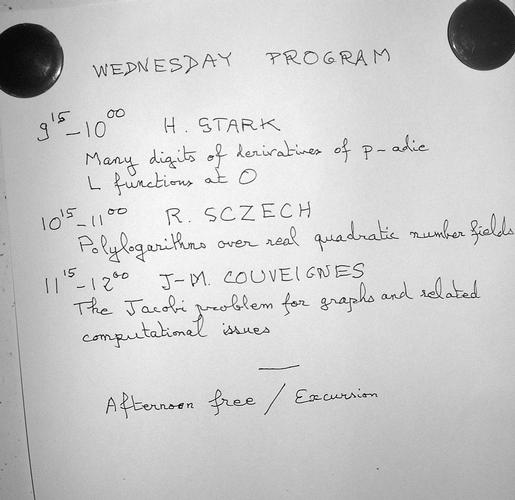 WEDNESDAY PROGRAM
9 15 - 10 00 H. STARK
Many digits of derivatives of p-adic
L functions at 0
10 15 - 11 00 R. SCZECH
Polylogarithms over real quadratic number fields
11 15 - 12 00 J-M. COUVEIGNES
The Jacobi problem for graphs and related
computational issues
Afternoon free / Excursion